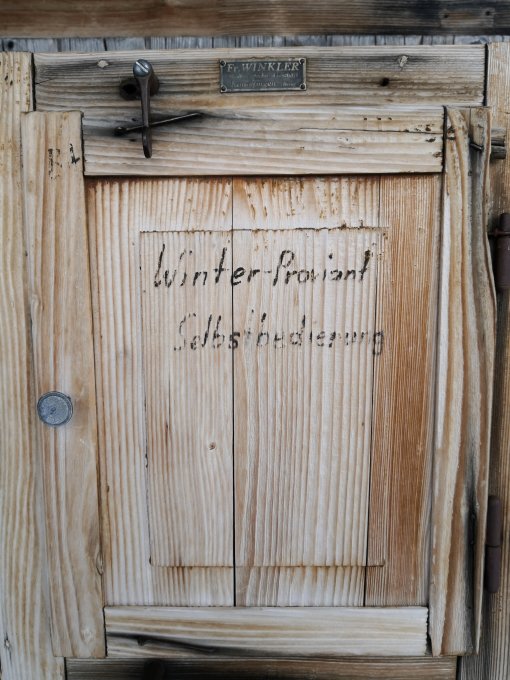 Fr. WINKLER
Winter-Proviant
Selbstbedienung